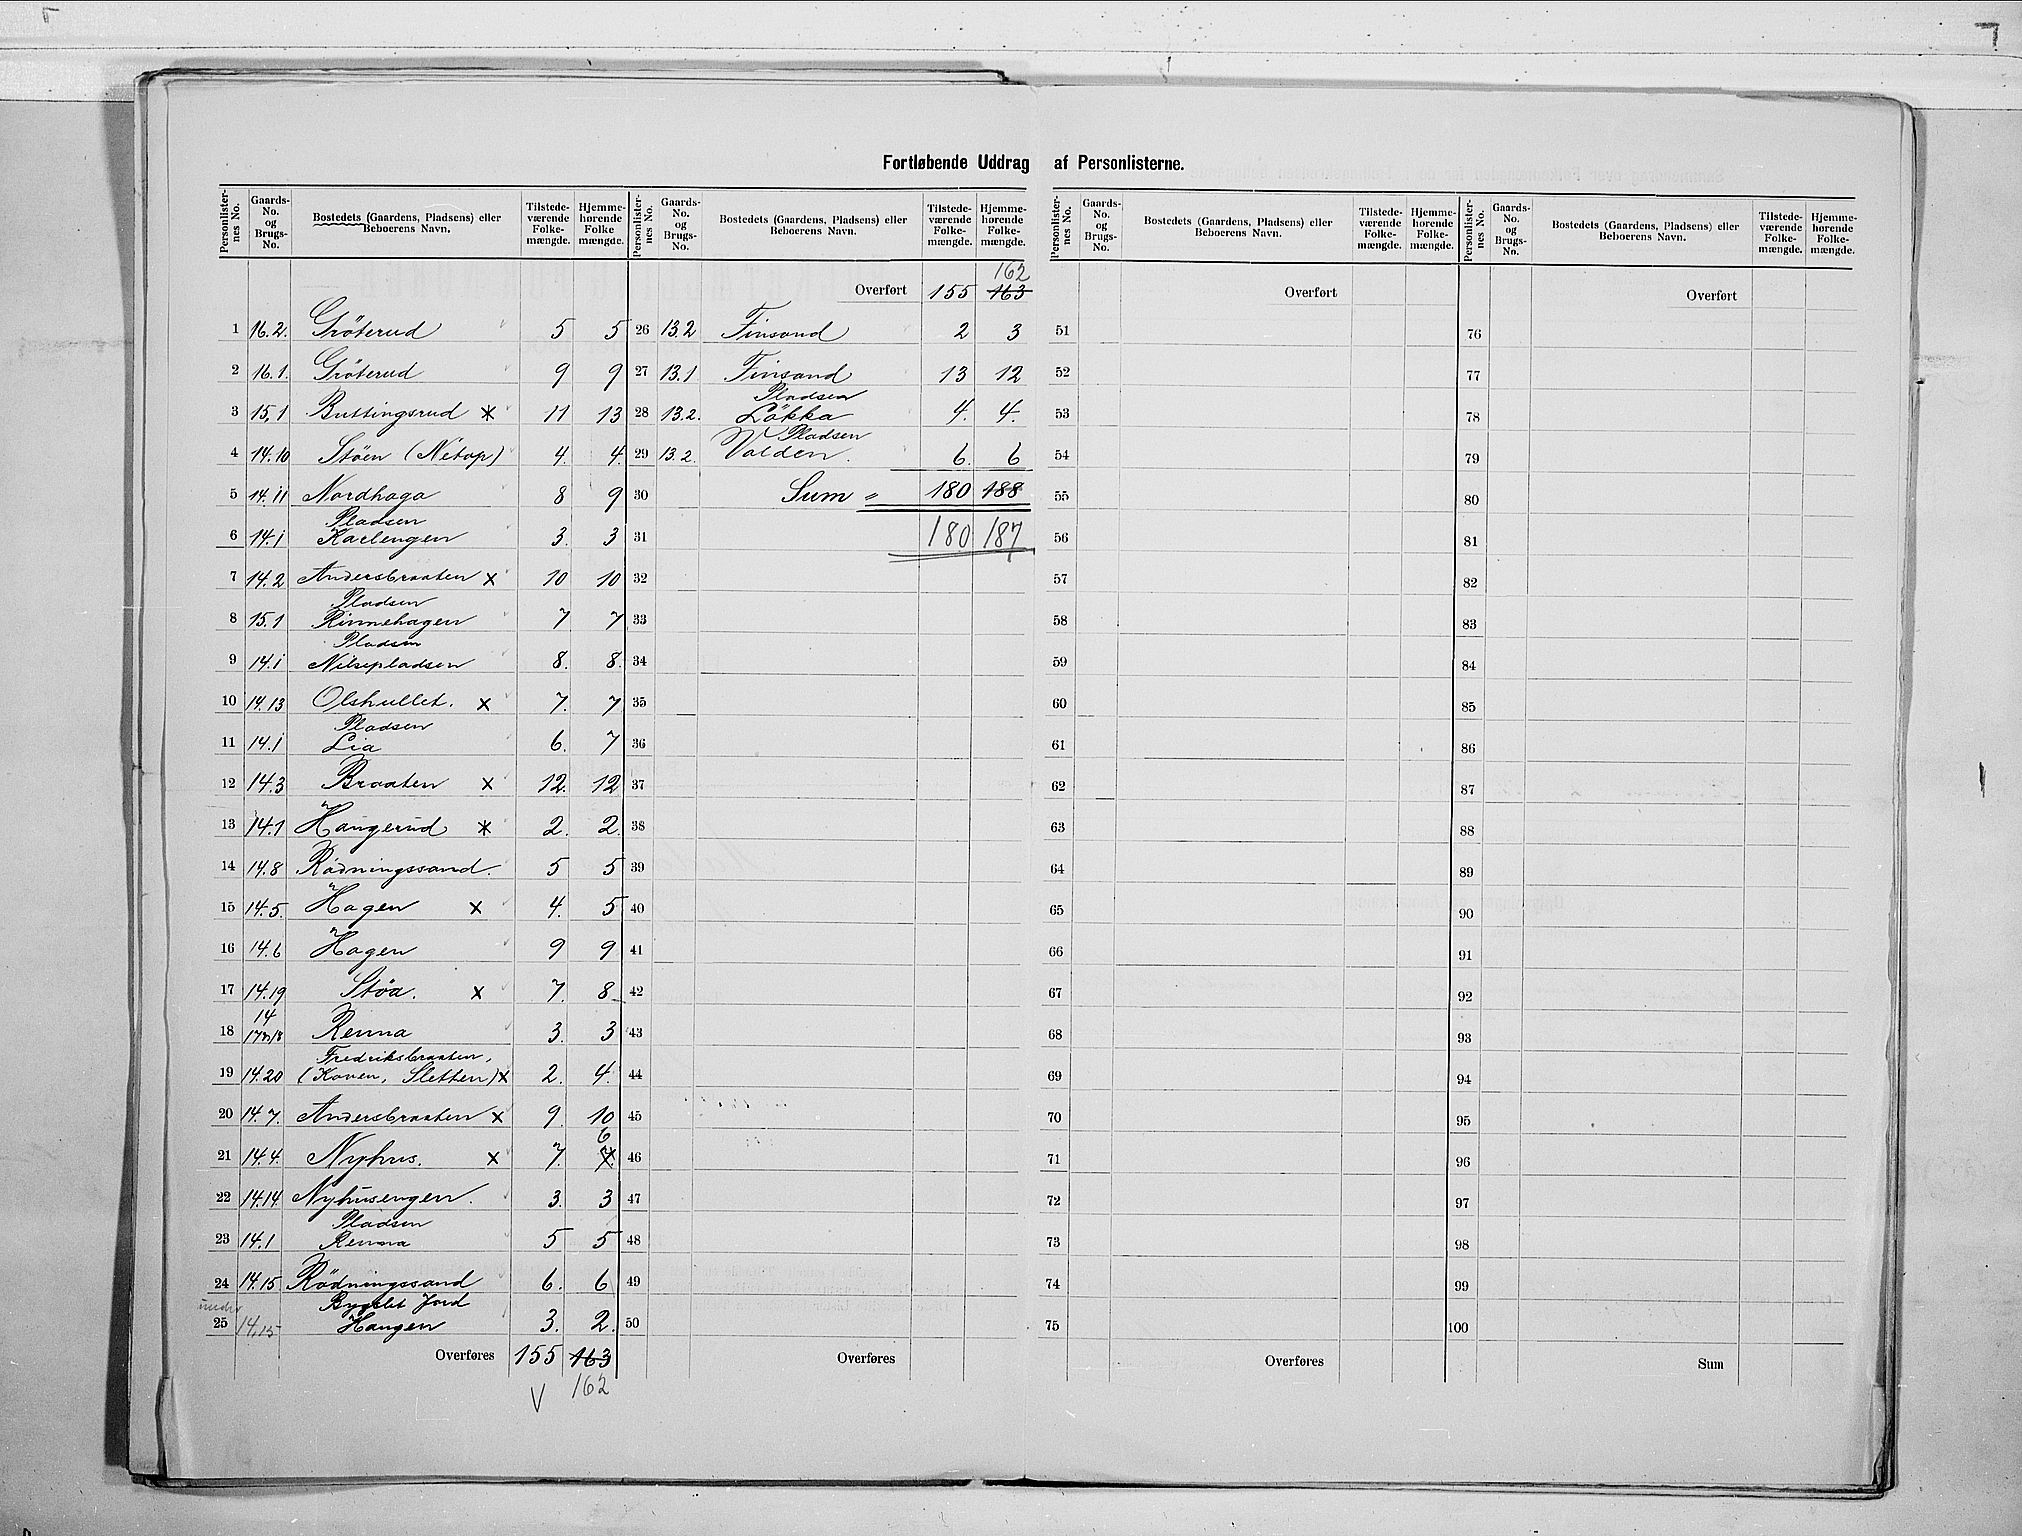 Fortløbende Uddrag af Personlisterne.
Personlister-nes No. Gaards-No. og Brugs-No. Bostedets (Gaardens, Pladsens) eller Beboerens Navn. Tilstede-værende Folke-mængde. Hjemme-hørende Folke mængde.
1 16.2. Gröterud 5 5
2 16.1. Gröterud 9 9
3 15,1 Buttingsrud x 11 13
4 14.10 Stöen (Nétop) 4. 4.
5 14.11 Nordhaga 8 9
Pladsen
6 14.1 Karlengen 3. 3
7 14.2 Andersbraaten x 10 10
Pladsen
8 15.1 Rinnehagen 7 7
Pladsen
9 14.1 Nilsepladsen 8. 8.
10 14.13 Olshullet. x 7. 7
Pladsen
11 14.1 Lia 6. 7
12 14.3 Braaten x 12. 12
13 14.1 Haugerud x 2. 2.
14 14.8 Rödningssand. 5 5
15 14.5. Hagen x 4. 5
16 14.6 Hagen 9 9
17 14.19 Stöa. x 7. 8
14
18 17og18 Renna 3. 3
Fredriksbraaten,
19 14.20 (Koven, Sletten) x 2. 4.
20 14.7. Andersbraaten x 9. 10
6
21 14.4. Nyhus. x 7. 7.
22 14.14 Nyhusengen. 3. 3
Pladsen
23 14.1 Renna 5 5
24 14.15 Rödningssand 6. 6
under Bygslet Jord
25 14,15 Haugen 3. 2.
Overføres 155 163
V 162
Personlister-nes No. Gaards-No. og Brugs-No. Bostedets (Gaardens, Pladsens) eller Beboerens Navn. Tilstede-værende Folke-mængde. Hjemme-hørende Folke-mængde.
162
Overført 155 163
26 13.2 Finsand 2 3
27 13.1 Finsand 13 12
Pladsen
28 13.2. Lökka 4. 4.
Pladsen
29 13.2. Volden. 6. 6
30 Sum " 180 188
31 180 187
32
33
34
35
36
37
38
39
40
41
42
43
44
45
46
47
48
49
50
Overføres
Personlister-nes No. Gaards-No. og Brugs-No. Bostedets (Gaardens, Pladsens) eller Beboerens Navn. Tilstede-værende Folke-mængde. Hjemme-hørende Folke-mængde.
Overført
51
52
53
54
55
56
57
58
59
60
61
62
63
64
65
66
67
68
69
70
71
72
73
74
75
Overføres
Personlister-nes No. Gaards-No. og Brugs-No. Bostedets (Gaardens, Pladsens) eller Beboerens Navn. Tilstede-værende Folke-mængde. Hjemme-hørende Folke-mængde.
Overført
76
77
78
79
80
81
82
83
84
85
86
87
88
89
90
91
92
93
94
95
96
97
98
99
100
Sum